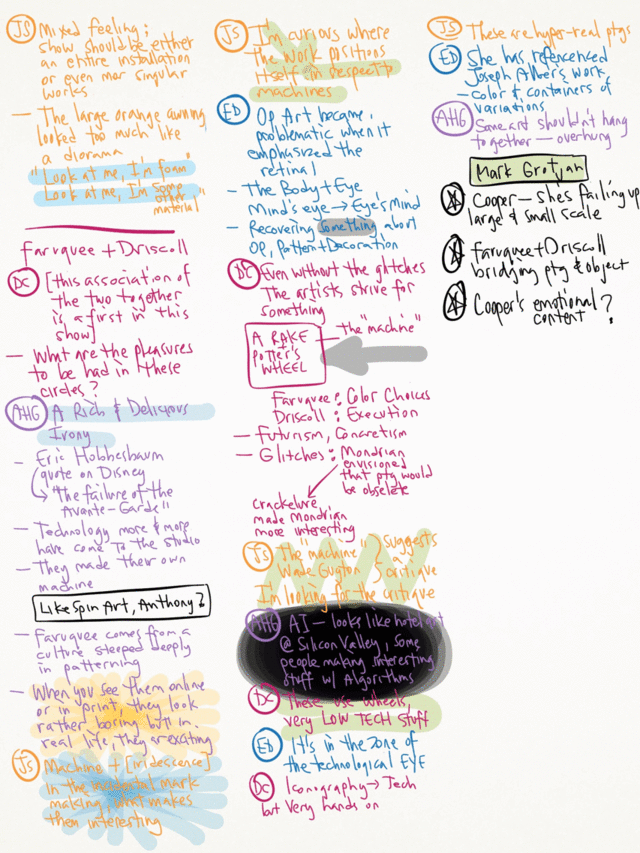 JS Mixed feeling;
show should be either
an entire installation
or even mor singular
works
— The large orange awning
looked too much like
a diorama
"Look at me, I'm foam"
Look at me, I'm some
other
material"
Faruquee + Driscoll
DC [this association of
the two together
is a first in this
show]
— What are the pleasures
to be had in these
circles?
AHG A Rich & Delicious
Irony
- Eric Hobbesbaum
quote on Disney
"The failure of the
Avante-Garde"
- Technology more & more
have come to the studio
- They made their own
machine
Like Spin Art, Anthony?
- Faruquee comes from a
culture steeped deeply
in patterning
- When you see them online
or in print, they look
rather boring but in
real life, they are exciting
JS Machine + [iridescence]
In the incidental mark
making, what makes
them interesting
JS I'm curious where
the work positions
itself in respect to
machines
ED Op Art became
problematic when it
emphasized the
retinal
- The Body + Eye
Mind's eye → Eye's Mind
- Recovering something about
Op, Pattern + Decoration
DC Even without the glitches
The artists strive for
something
A RAKE
POTTER'S
WHEEL
the "machine"
Faruquee : Color Choices
Driscoll : Execution
— Futurism, Concretism
— Glitches : Mondrian
envisioned
that ptg would
be obselete
crackelure
made Mondrian
more interesting
JS The "machine" suggests
Wade Guyton a critique
I'm looking for the critique
AHG AI — looks like hotel art
@ Silicon Valley, some
people making interesting
stuff w/ Algorithms
DC These use wheels,
very LOW TECH stuff
ED It's in the zone of
the technological EYE
DC Iconography → Tech
but Very hands on
JS These are hyper-real ptgs
ED She has refencenced
Joseph Alber's work
- color & containers of
variations
AHG Some art shouldn't hang
together — overhung
Mark Grotjan
Cooper — she's failing up
large & small scale
Faruquee + Driscoll
bridging ptg & object
Cooper's emotional
content?